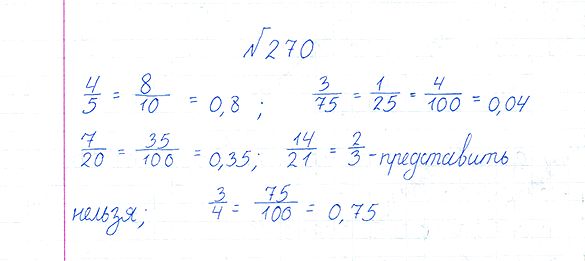 №270
4/5 = 8/10 = 0,8 ; 3/75 = 1/25 = 4/100 = 0,04
7/20 = 35/100 = 0,35; 14/21 = 2/3 - представить
нельзя; 3/4 = 75/100 = 0,75